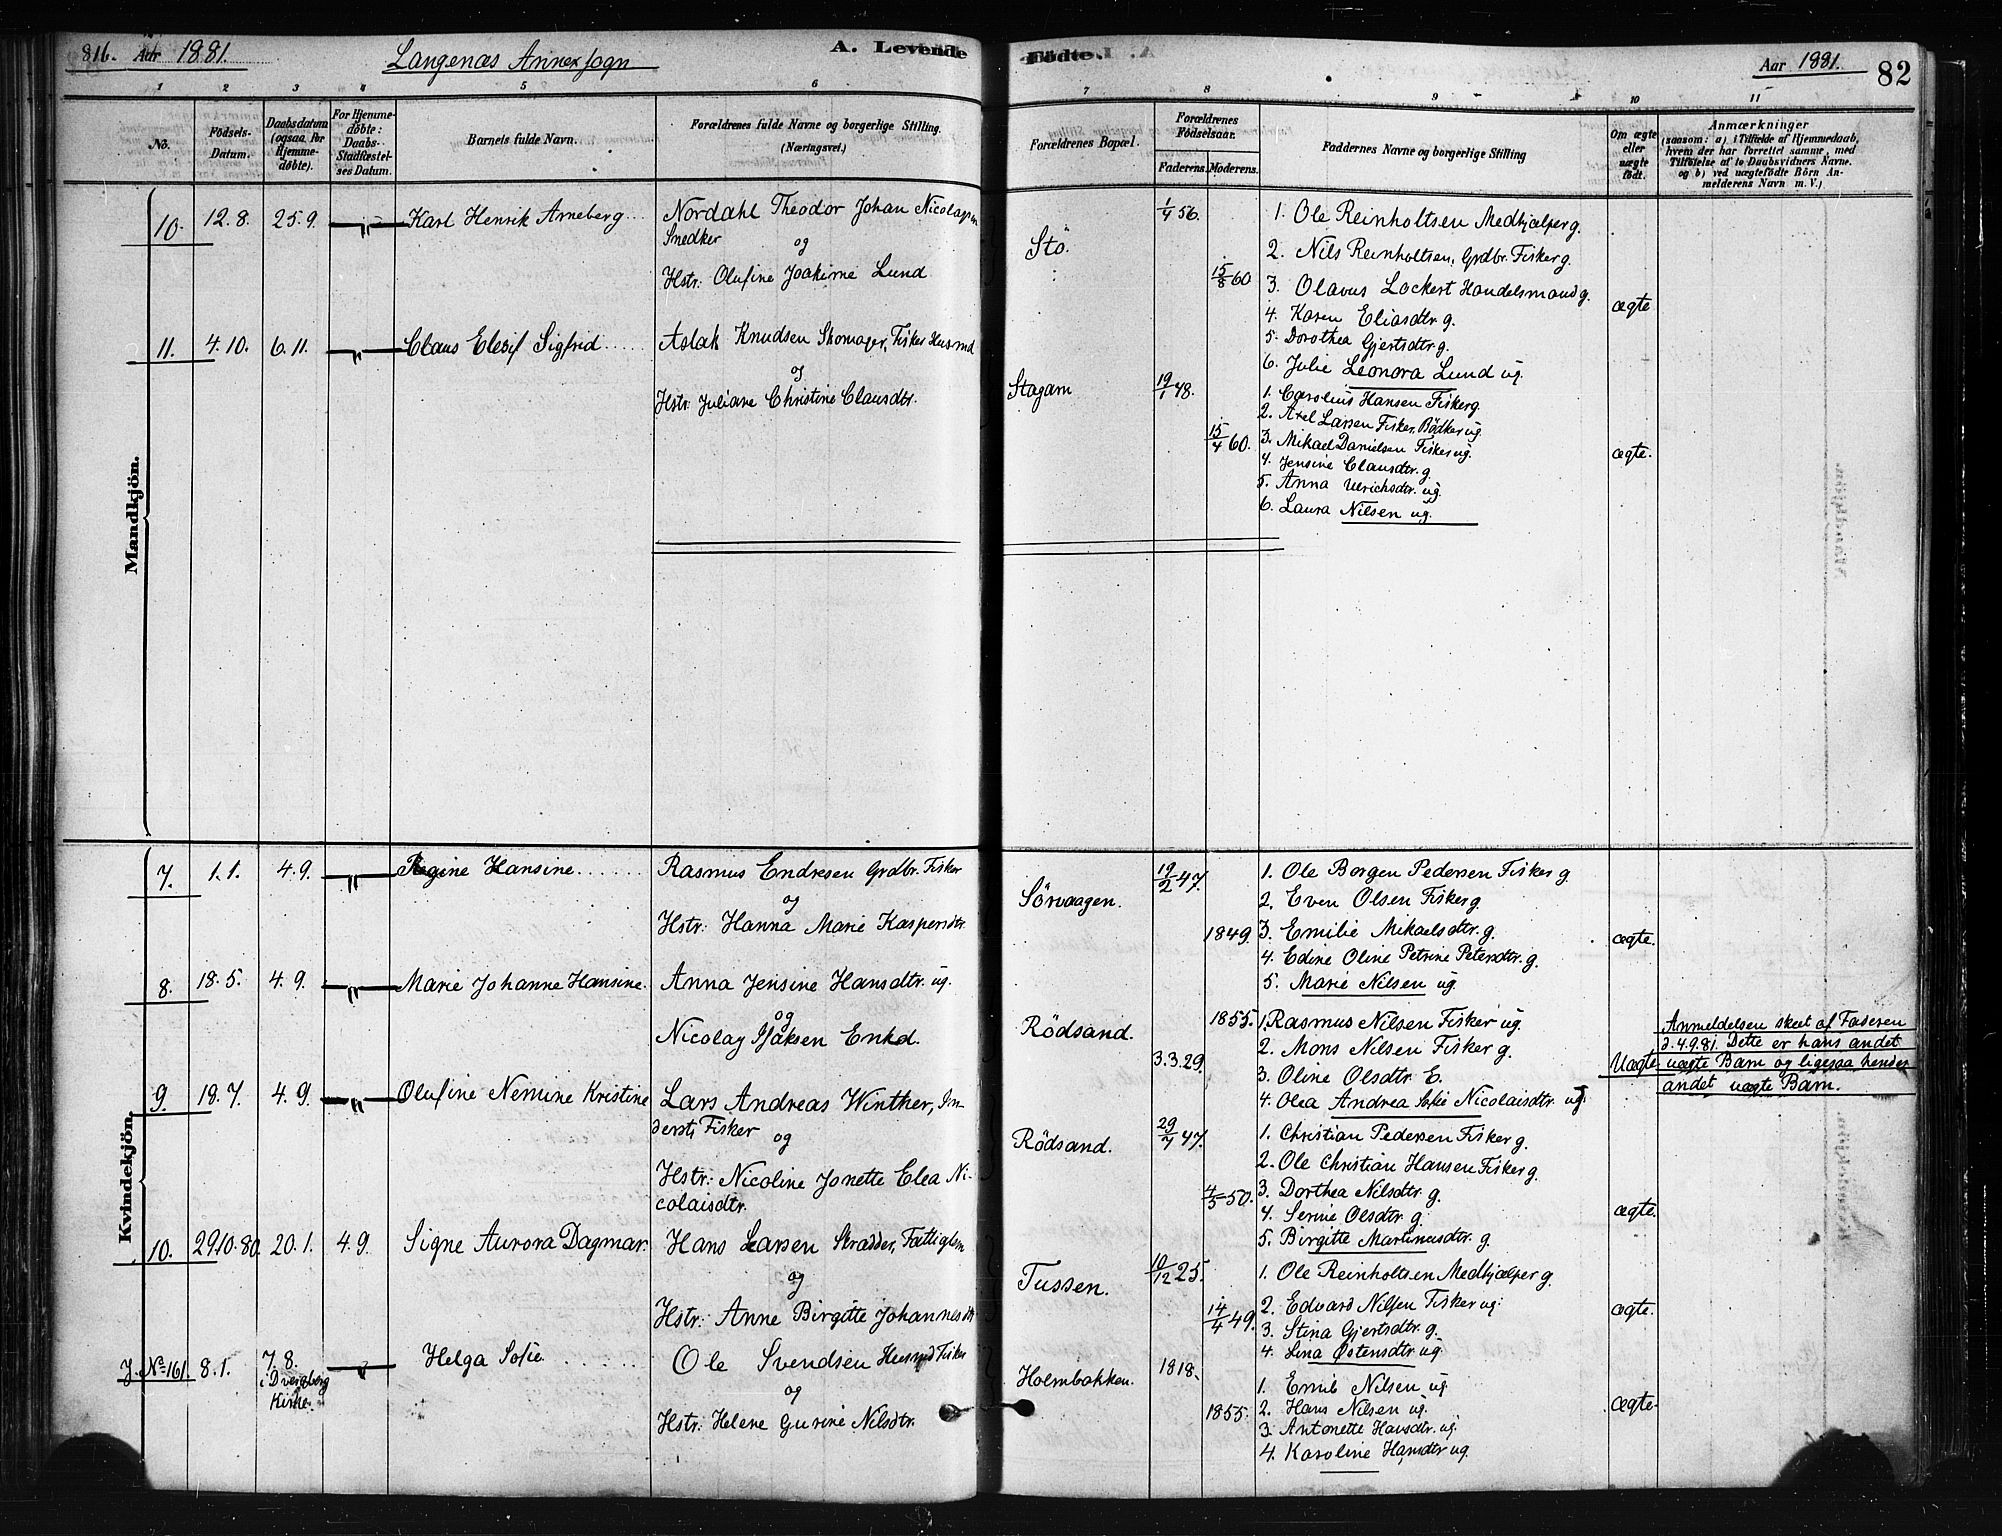 816. Aar 1881. Langenæs Annexsogn A. Levende
Fødte. Aar 1881. 82
1 2 3 4 5 6
7 8 9 10 11
No.
Födsels-
Datum.
Daabsdatum
(ogsaa for
Hjemme-
døbte).
For Hjemme-
døbte:
Daabs-
Stadfæstel-
ses Datum.
Barnets fulde Navn.
Forældrenes fulde Navne og borgerlige Stilling.
(Næringsvei.)
Forældrenes Bopæl.
Forældrenes
Födselsaar.
Faderens. Moderens.
Faddernes Navne og borgerlige Stilling
Om ægte
eller
uægte
födt.
Anmærkninger
(saasom: a) i Tilfælde af Hjemmedaab,
hvem der har forrettet samme, med
Tilföielse af to Daabsvidners Navne.
og b) ved uægtefödte Börn An-
melderens Navn m. V.)
Mandkjön.
10. 12.8. 25.9. —"— Karl Henrik Arneberg
Nordahl Theodor Johan Nicolaysen
Snedker
og
Hstr: Olufine Joakime Lund
Stö.
1/4 56.
15/8 60
1. Ole Reinholtsen Medhjælper g.
2. Nils Reinholtsen, Grdbr. Fisker g.
3. Olavus Lockert Handelsmand g.
4. Karen Eliasdtr g.
5. Dorothea Gjertsdtr g.
6. Julie Leonora Lund ug.
ægte
11. 4.10. 6.11. —"— Claus Elesif Sigfrid
Aslak Knudsen Skomager, Fisker Husmd
og
Hstr. Juliane Christine Clausdtr.
Stagarn
19/1 48.
15/4 60.
1. Carolius Hansen Fisker g.
2. Axel Larsen Fisker, Bödker ug.
3. Mikael Danielsen Fisker ug.
4. Jensine Clausdtr. g
5. Anna Ulrichsdtr. ug.
6. Laura Nilsen ug.
ægte.
Kvindekjön.
7. 1.1. 4.9. —"— Regine Hansine
Rasmus Endresen Grdbr. Fisker
og
Hstr: Hanna Marie Kaspersdtr.
Sörvaagen.
19/2 47.
1849.
1. Ole Borgen Pedersen Fisker g
2. Even Olsen Fisker g.
3. Emilie Mikaelsdtr. g.
4. Edine Oline Petrine Petersdtr. g.
5. Marie Nilsen ug
ægte.
8. 18.5. 4.9. —"— Marie Johanne Hansine.
Anna Jensine Hansdtr. ug.
og
Nicolay Isaksen Enkd.
Rödsand.
1855.
3.3.29.
1. Rasmus Nilsen Fisker ug.
2. Mons Nilsen Fisker g.
3. Oline Olsdtr. E.
4. Olea Andrea Sofie Nicolaisdtr. ug.
Uægte
Anmeldelsen skeet af Faderen
d. 4.9.81. Dette er hans andet
uægte Barn og ligesaa hendes
andet uægte Barn.
9. 18.7. 4.9. —"— Olufine Nemine Kristine
Lars Andreas Winther, In-
derst, Fisker
og
Hstr: Nicoline Jonette Elea Ni-
colaisdtr.
Rödsand.
29/7 47.
4/5 50.
1. Christian Pedersen Fisker g.
2. Ole Christian Hansen Fisker g.
3. Dorthea Nilsdtr. g.
4. Serine Olsdtr. g.
5. Birgitte Martinusdtr. g.
ægte.
10. 29.10.80. 20.1. 4.9. Signe Aurora Dagmar.
Hans Larsen Skrædder, Fattiglem
og
Hstr: Anne Birgitte Johannesdtr
Tussen.
10/12 25.
14/4 49.
1. Ole Reinholtsen Medhjælper g.
2. Edvard Nilsen Fisker ug.
3. Stina Gjertsdtr. g.
4. Lina Østensdtr. ug.
ægte.
J. No 161. 8.1. 7.8.
i Dverberg
Kirke.
Helga Sofie
Ole Svendsen Husmd Fisker
og
Hstr: Helene Gurine Nilsdtr.
Holmbakken.
1818.
1855.
1. Emil Nilsen ug.
2. Hans Nilsen ug.
3. Antonette Hansdtr. ug.
4. Karoline Hansdtr ug.
ægte.